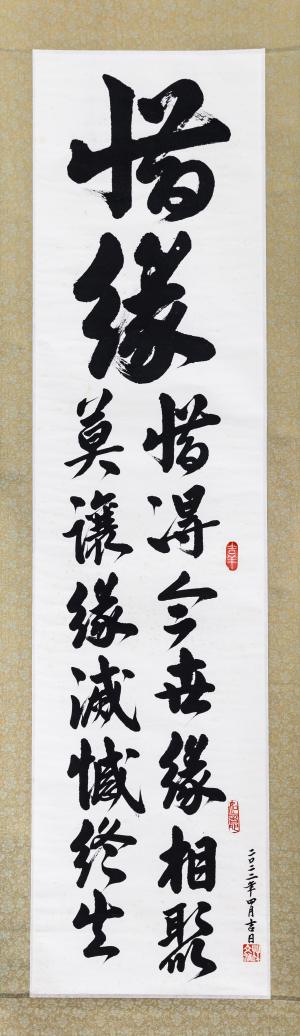 惜緣
惜得今世緣相聚
莫讓緣滅憾終生
二〇二二年四月吉日